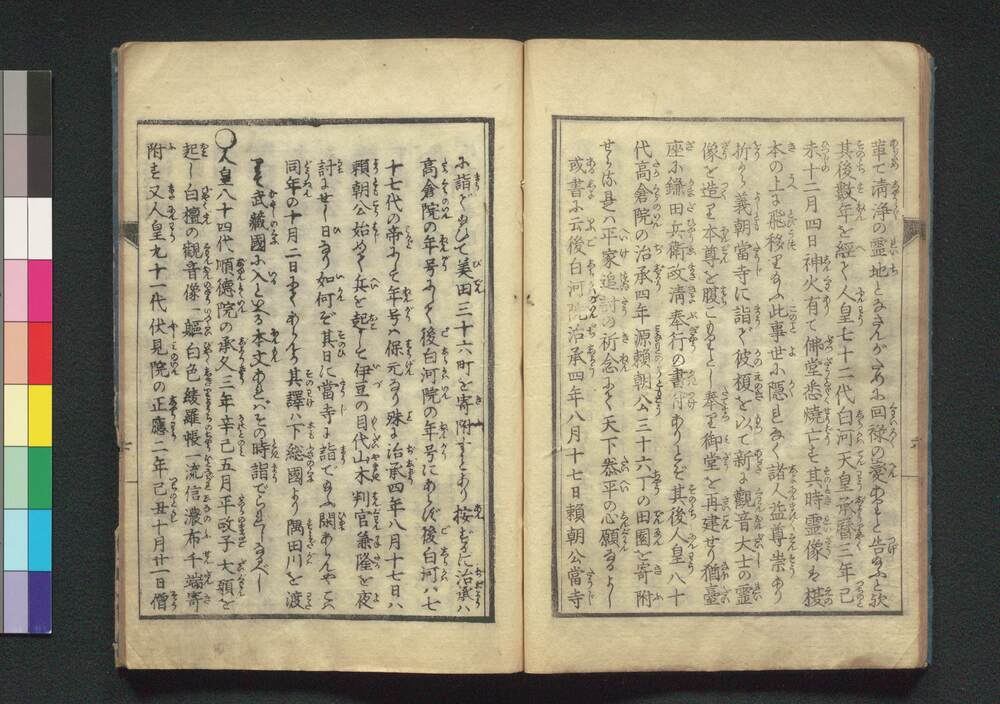 革て清浄の霊地となさんがために回禄の変ありと告給ふと欤
其後数年を経て人皇七十二代白河天皇承暦三年己
未十二月四日神火有て佛堂悉焼亡す其時霊像は榎
木の上に飛移り給ふ此事世に隠れなく諸人益尊崇あり
折から義朝當寺に詣で彼榎を以て新に觀音大士の霊
像を造り本尊を腹ごもりとし奉り御堂を再建せり猶臺
座に鎌田兵衛政清奉行の書付ありとぞ其後人皇八十
代高倉院の治承四年源頼朝公三十六丁の田園を寄附
せらる是は平家追討の祈念ふくて天下泰平の心願なるよし
或書に云後白河院治承四年八月十七日頼朝公當寺
に詣で給ひて美田三十六町を寄附すとあり按ずるに治承ハ
高倉院の年号にて後白河院の年号にあらず後白河ハ七
十七代の帝にて年号ハ保元なり殊に治承四年八月十七日ハ
頼朝公始めて兵を起して伊豆の目代山木判官兼隆を夜
討にせし日なり如何ぞ其日に當寺に詣で給ふ閑あらんや
同年の十月二日ならんか其譯ハ下総國より隅田川を渡
りて武藏國に入と本文あれバその時詣でられしなるべし
○人皇八十四代順徳院の承久三年辛巳五月平政子大願を
起し白檀の觀音像一軀白色綾羅帳一流信濃布千端寄
附す又人皇九十一代伏見院の正應二年己丑十月廿一日僧